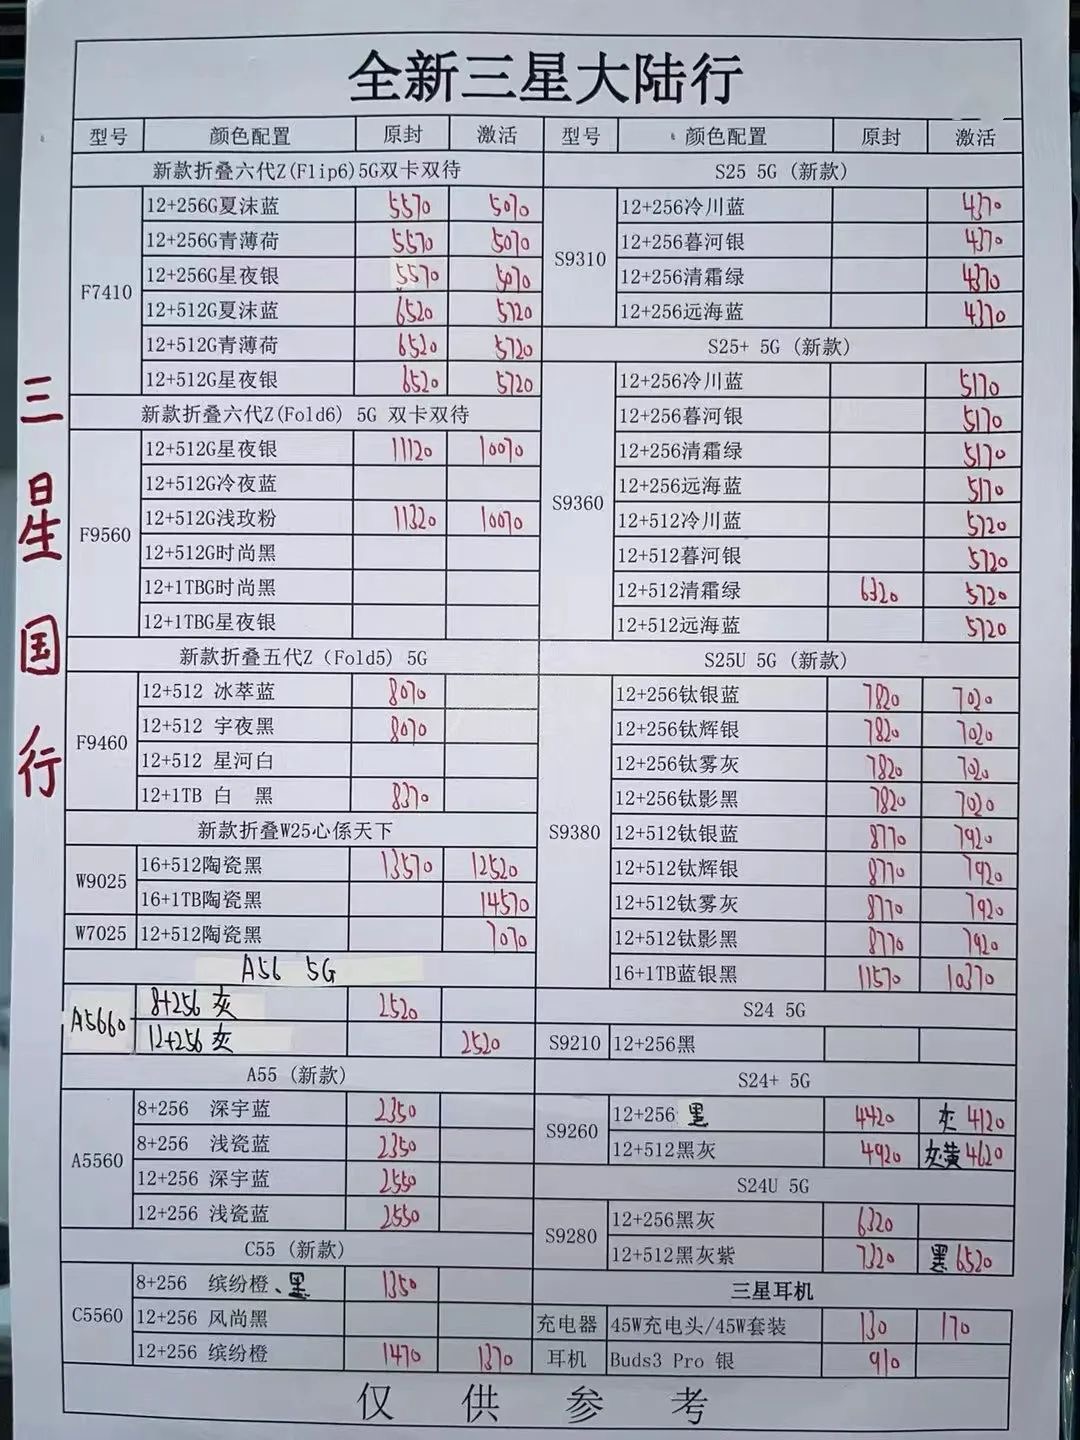 全新三星大陆行
型号 颜色配置 原封 激活
新款折叠六代Z(Flip6)5G双卡双待
F7410
12+256G夏沫蓝 5570 5070
12+256G青薄荷 5570 5070
12+256G星夜银 5570 5070
12+512G夏沫蓝 6520 5720
12+512G青薄荷 6520 5720
12+512G星夜银 6520 5720
新款折叠六代Z(Fold6) 5G 双卡双待
F9560
12+512G星夜银 11120 10070
12+512G冷夜蓝
12+512G浅玫粉 11320 10070
12+512G时尚黑
12+1TBG时尚黑
12+1TBG星夜银
新款折叠五代Z（Fold5) 5G
F9460
12+512 冰萃蓝 8070
12+512 宇夜黑 8070
12+512 星河白
12+1TB 白 黑 8370
新款折叠W25心係天下
W9025
16+512陶瓷黑 13570 12520
16+1TB陶瓷黑 14570
W7025 12+512陶瓷黑 7070
A56 5G
A5660
8+256 灰 2520
12+256 灰 2520
A55 (新款)
A5560
8+256 深宇蓝 2350
8+256 浅瓷蓝 2350
12+256 深宇蓝 2550
12+256 浅瓷蓝 2550
C55 (新款)
C5560
8+256 缤纷橙、黑 1350
12+256 风尚黑
12+256 缤纷橙 1470 1370
型号 颜色配置 原封 激活
S25 5G (新款)
S9310
12+256冷川蓝 4370
12+256暮河银 4370
12+256清霜绿 4370
12+256远海蓝 4370
S25+ 5G (新款)
S9360
12+256冷川蓝 5170
12+256暮河银 5170
12+256清霜绿 5170
12+256远海蓝 5170
12+512冷川蓝 5720
12+512暮河银 5720
12+512清霜绿 6320 5720
12+512远海蓝 5720
S25U 5G (新款)
S9380
12+256钛银蓝 7820 7020
12+256钛辉银 7820 7020
12+256钛雾灰 7820 7020
12+256钛影黑 7820 7020
12+512钛银蓝 8770 7920
12+512钛辉银 8770 7920
12+512钛雾灰 8770 7920
12+512钛影黑 8770 7920
16+1TB蓝银黑 11570 10370
S24 5G
S9210 12+256黑
S24+ 5G
S9260
12+256 黑 4420 灰 4120
12+512黑灰 4920 灰黄4620
S24U 5G
S9280
12+256黑灰 6320
12+512黑灰紫 7320 黑6520
三星耳机
充电器 45W充电头/45W套装 130 170
耳机 Buds3 Pro 银 910
仅供参考
三星国行